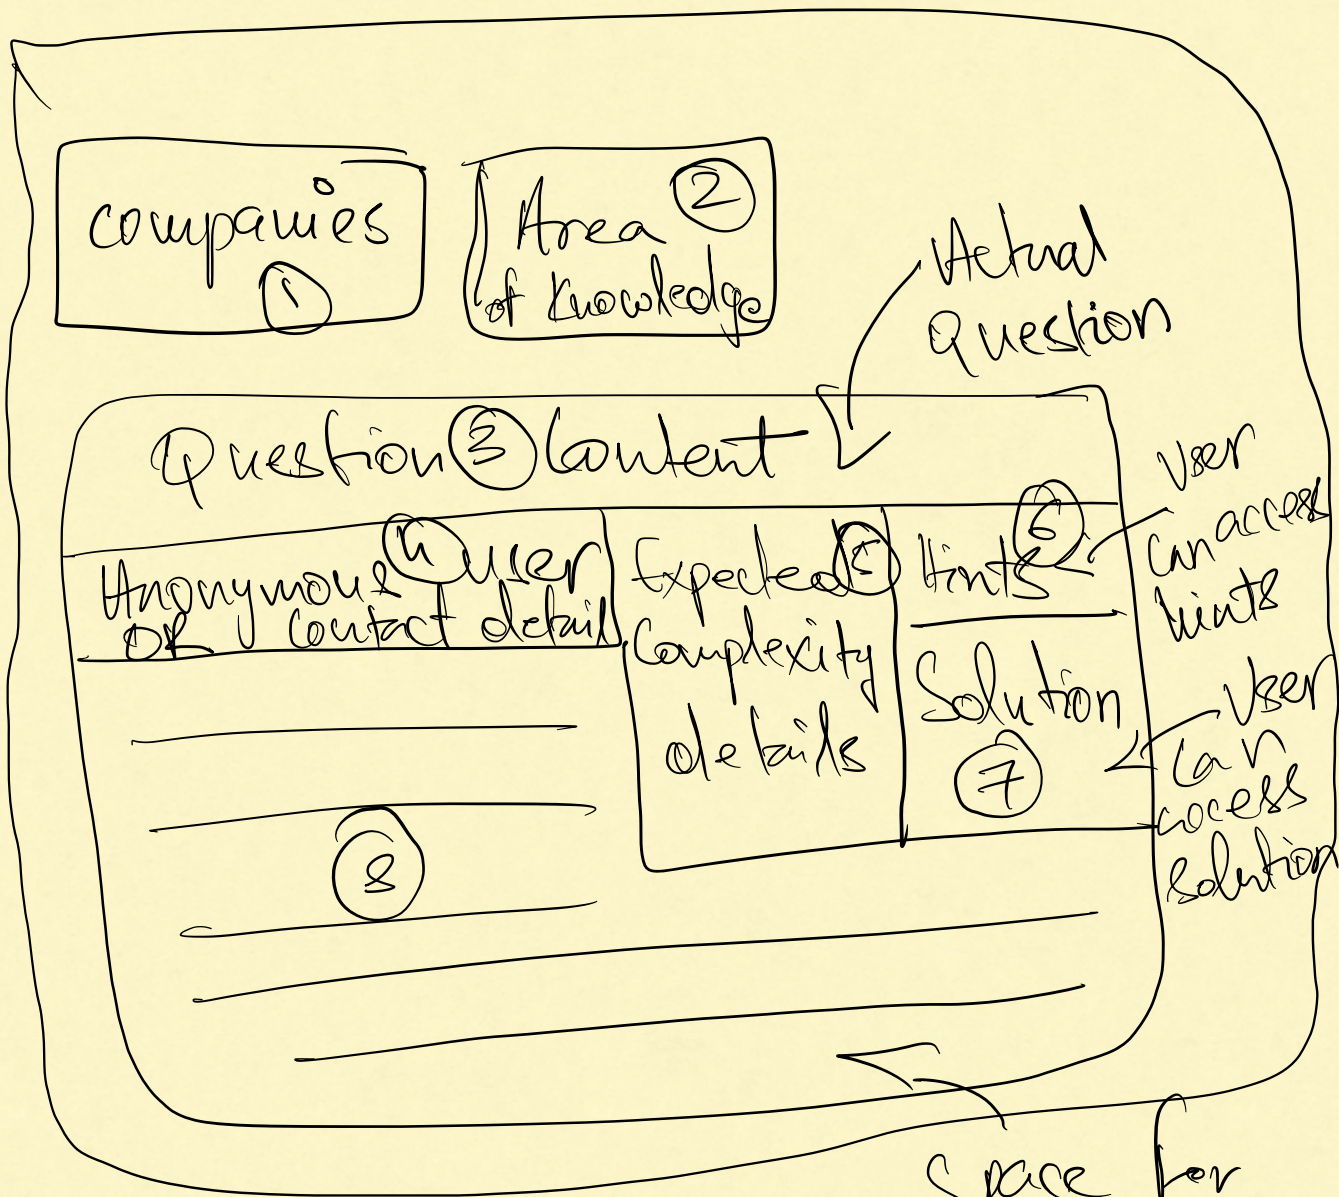 companies
1
Area 2
of Knowledge
Actual
Question
Question 3 Content
Anonymous 4 user
OR contact detail
Expected 5
Complexity
details
6
Hints
Solution
7
User
can access
hints
User
can
access
solution
8
Space for